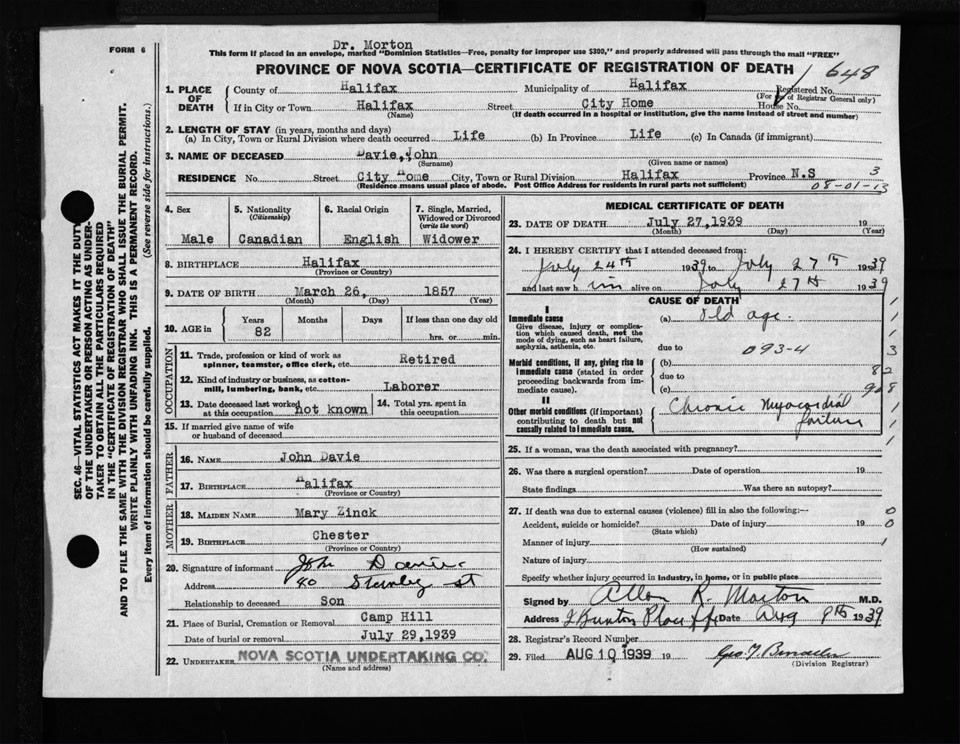 FORM 6
Dr. Morton
This form if placed in an envelope, marked "Dominion Statistics—Free, penalty for improper use $300," and properly addressed will pass through the mail "FREE"
PROVINCE OF NOVA SCOTIA—CERTIFICATE OF REGISTRATION OF DEATH
648
1. PLACE OF DEATH
County of Halifax Municipality of Halifax Registered No.
(For use of Registrar General only)
If in City or Town Halifax Street City Home House No.
(Name) (If death occurred in a hospital or institution, give the name instead of street and number)
2. LENGTH OF STAY (in years, months and days)
(a) In City, Town or Rural Division where death occurred Life (b) In Province Life (c) In Canada (if immigrant)
3. NAME OF DECEASED Davie, John
(Surname) (Given name or names)
RESIDENCE No. Street City Home City, Town or Rural Division Halifax Province N.S 3
(Residence means usual place of abode. Post Office Address for residents in rural parts not sufficient) 08-01-13
4. Sex Male
5. Nationality (Citizenship) Canadian
6. Racial Origin English
7. Single, Married, Widowed or Divorced (write the word) Widower
8. BIRTHPLACE Halifax
(Province or Country)
9. DATE OF BIRTH March 26, 1857
(Month) (Day) (Year)
10. AGE in Years 82 Months Days If less than one day old
hrs. or min.
OCCUPATION
11. Trade, profession or kind of work as spinner, teamster, office clerk, etc. Retired
12. Kind of industry or business, as cotton-mill, lumbering, bank, etc. Laborer
13. Date deceased last worked at this occupation not known 14. Total yrs. spent in this occupation
15. If married give name of wife or husband of deceased
FATHER
16. NAME John Davie
17. BIRTHPLACE Halifax
(Province or Country)
MOTHER
18. MAIDEN NAME Mary Zinck
19. BIRTHPLACE Chester
(Province or Country)
20. Signature of informant John Davie
Address 40 Stanley St
Relationship to deceased Son
21. Place of Burial, Cremation or Removal Camp Hill
Date of burial or removal July 29,1939
22. UNDERTAKER NOVA SCOTIA UNDERTAKING CO.
(Name and address)
MEDICAL CERTIFICATE OF DEATH
23. DATE OF DEATH July 27,1939 19
(Month) (Day) (Year)
24. I HEREBY CERTIFY that I attended deceased from:
July 24th 1939 to July 27th 1939
and last saw him alive on July 27th 1939
CAUSE OF DEATH
I
Immediate cause (a) old age.
Give disease, injury or complication which caused death, not the mode of dying, such as heart failure, asphyxia, asthenia, etc.
due to 093-4
Morbid conditions, if any, giving rise to immediate cause (stated in order proceeding backwards from immediate cause).
(b)
due to 82
(c) 968
II
Other morbid conditions (if important) contributing to death but not causally related to immediate cause.
Chronic Myocardial failure
25. If a woman, was the death associated with pregnancy?
26. Was there a surgical operation? Date of operation 19
State findings Was there an autopsy?
27. If death was due to external causes (violence) fill in also the following:— 0
Accident, suicide or homicide? Date of injury 19 0
(State which)
Manner of injury 1
(How sustained)
Nature of injury
Specify whether injury occurred in industry, in home, or in public place
Signed by Allan R. Morton M.D.
Address Date Aug 9th 1939
28. Registrar's Record Number
29. Filed AUG 10 1939 19
(Division Registrar)
SEC. 46—VITAL STATISTICS ACT MAKES IT THE DUTY
OF THE UNDERTAKER OR PERSON ACTING AS UNDER-
TAKER TO OBTAIN ALL THE PARTICULARS REQUIRED
IN THE "CERTIFICATE OF REGISTRATION OF DEATH"
AND TO FILE THE SAME WITH THE DIVISION REGISTRAR WHO SHALL ISSUE THE BURIAL PERMIT.
WRITE PLAINLY WITH UNFADING INK. THIS IS A PERMANENT RECORD.
Every item of information should be carefully supplied. (See reverse side for instructions.)